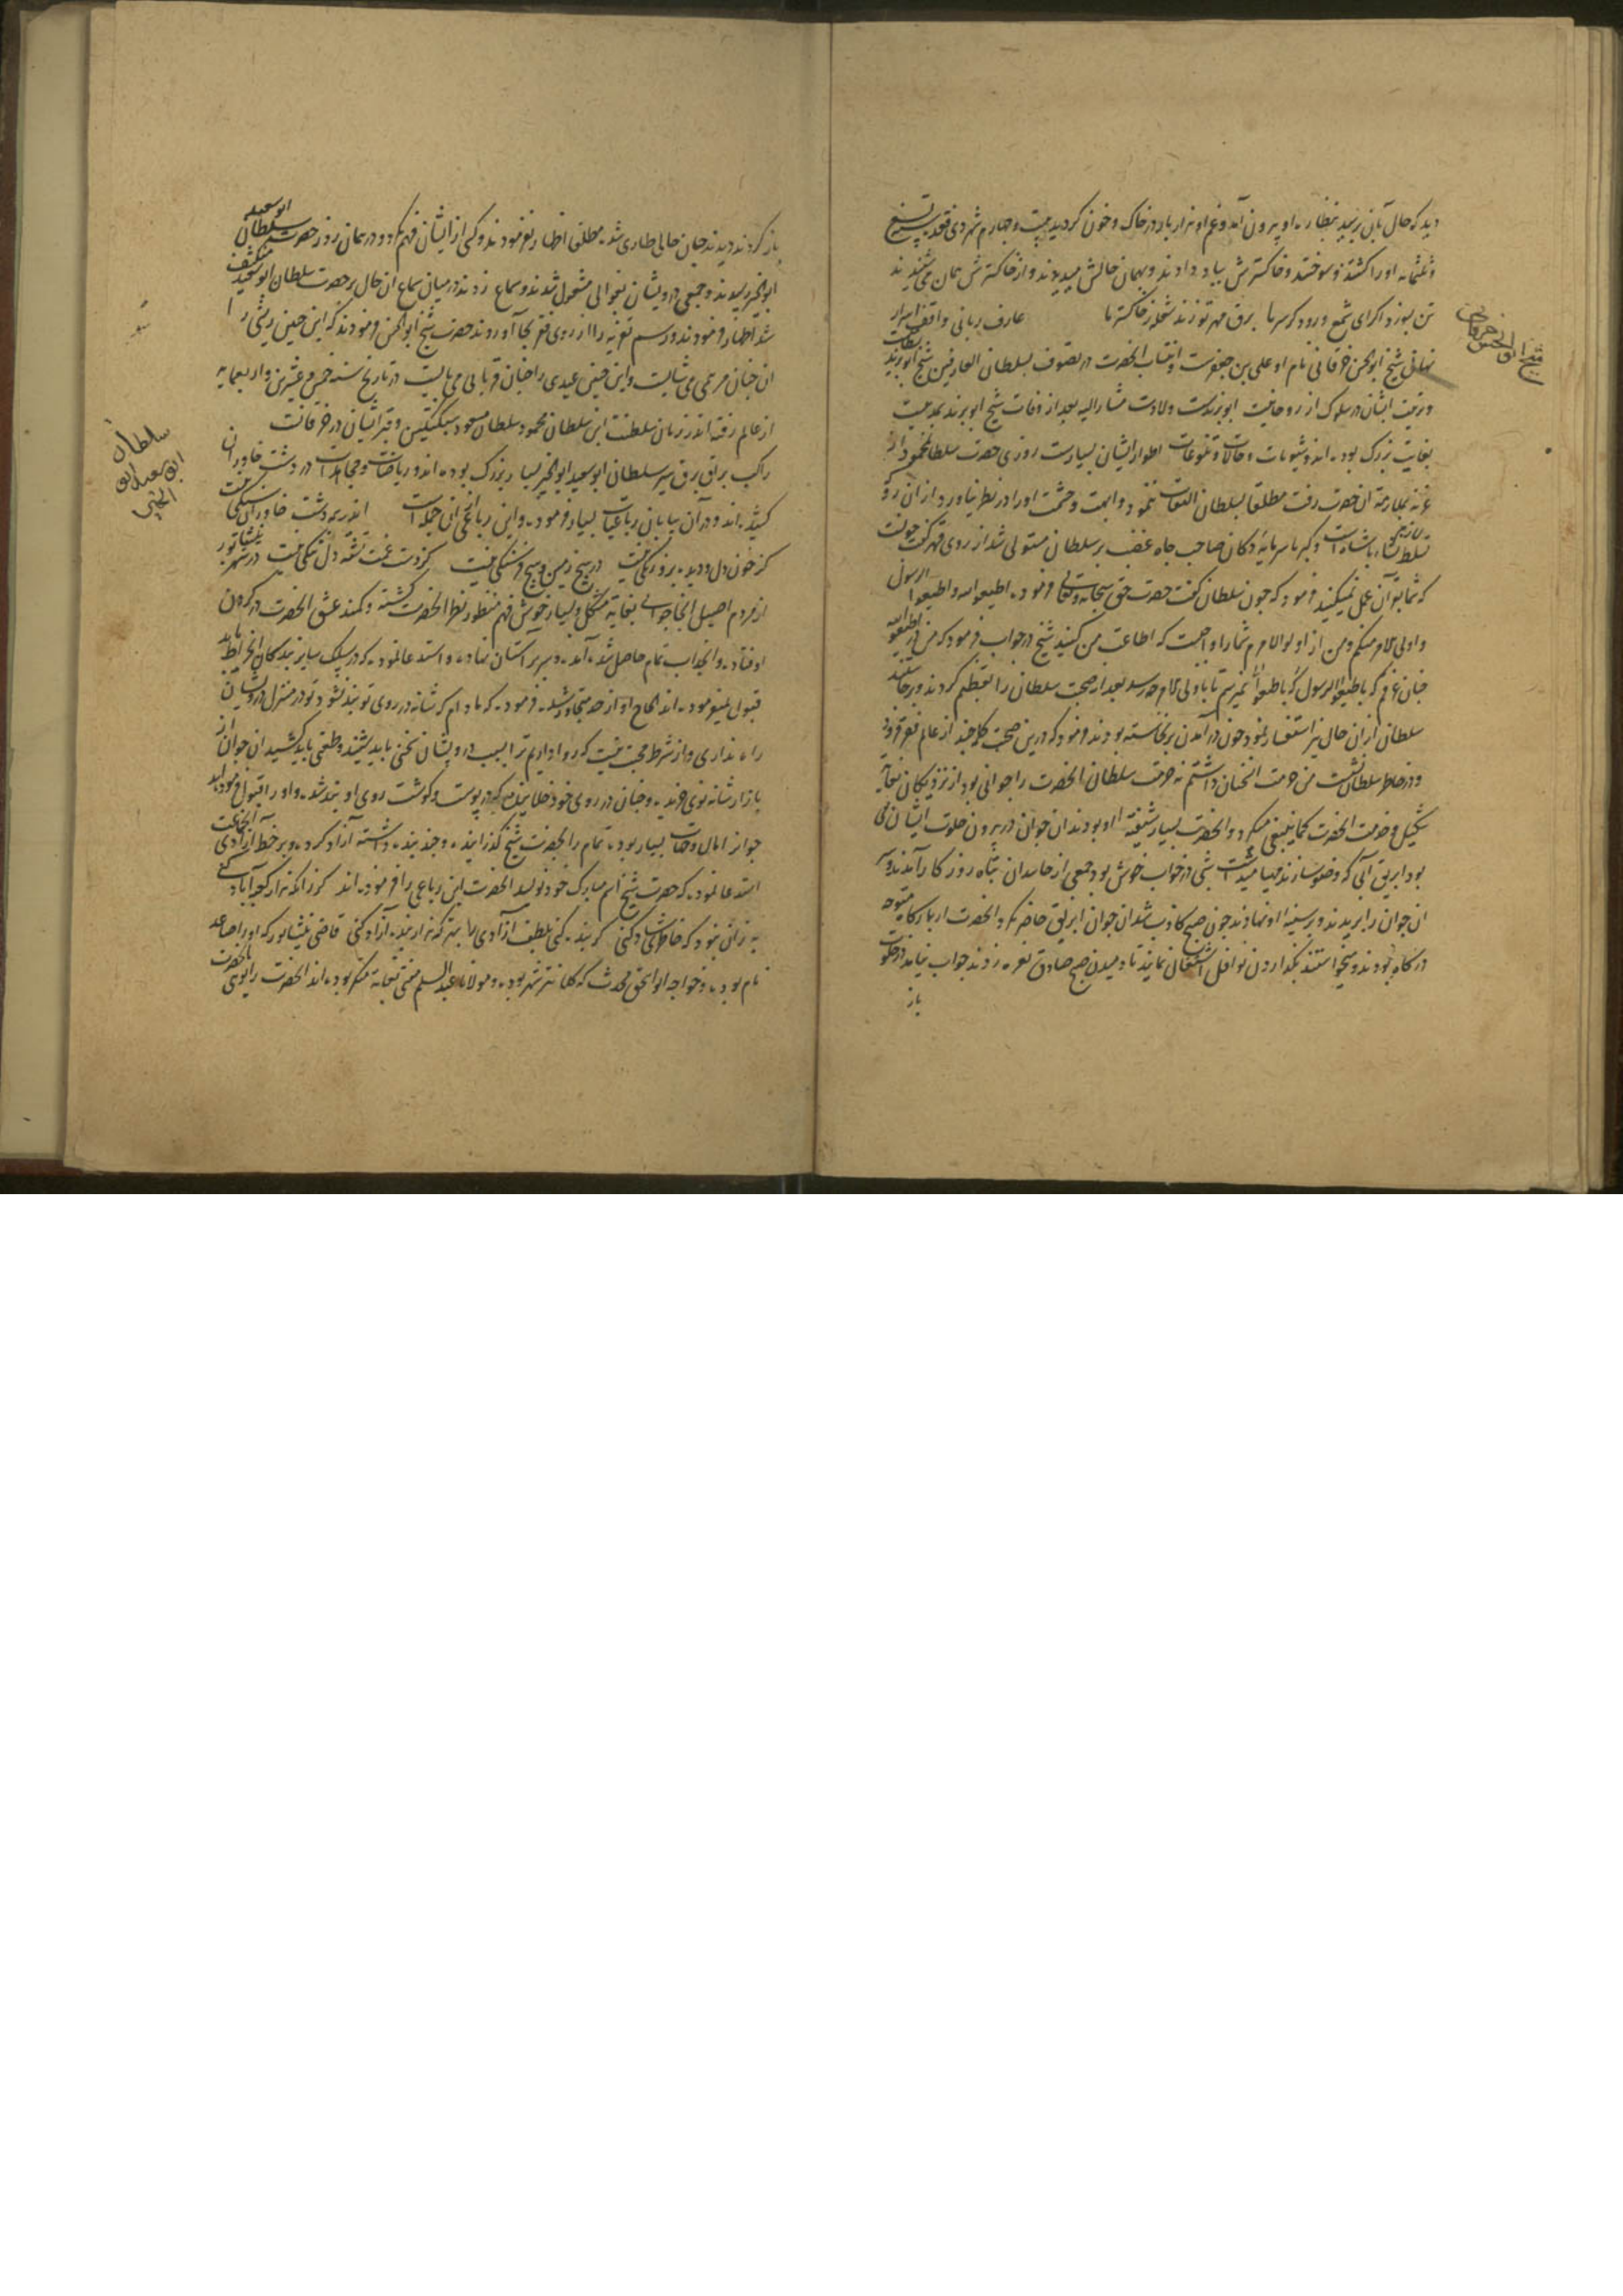 دید که حال بآن رسید بنظاره او بیرون آمد و غم او هزار بار در خاک و خون کردید بیست و چهارم شهر ذی قعده تسع
و ثلثمائه او را کشتند و سوختند و خاکسترش بباد دادند و بهمان حالش میدیدند و از خاکسترش همان می شنیدند
تن بسوزد اکرای شمع ورود کر سر ما برق مهر تو زند شعله ز خاکستر ما عارف ربانی واقف اسرار
نهانی شیخ ابوالحسن خرقانی نام او علی بن جعفرست و انتساب آنحضرت در تصوف بسلطان العارفین شیخ ابویزید بسطامیست
و تربیت ایشان در سلوک از روحانیت ابویزیدست ولادت مشارالیه بعد از وفات شیخ ابویزید بمدتیست
بغایت بزرک بوده اند و شیونات و حالات و تنوعات اطوار ایشان بسیارست روزی حضرت سلطان محمود از
غزنه بملازمت آنحضرت رفت مطلقا بسلطان التفات ننمود و ابهت و حشمت او را در نظر نیاورد و از آن رو که
تسلط لازمه پادشاهان است و کبر ما سرمایه دکان صاحب جاه غضب بر سلطان مستولی شد از روی قهر کفت چونست
که شما بقرآن عمل نمیکنید فرمود که چون سلطان کفت حضرت حق سبحانه و تعالی فرموده اطیعوا الله و اطیعوا الرسول
و اولی الامر منکم و من از اولوالامرم شما را واجبست که اطاعت من کنید شیخ در جواب فرمود که من در اطیعوا الله
چنان غرقم که باطیعوا الرسول نمیرسم تا باولی الامر چه رسد بعد از صحبت سلطان را تعظیم کردند و برخاستند
سلطان از آن حال نیز استفسار نمود چون در آمدن برنخاسته بودند فرمود که درین صحبت کلمه چند از عالم فقر فرو
و در خاطر سلطان نشست من حرمت آن سخنان داشتم نه حرمت سلطان آنحضرت را جوانی بود از نزدیکان بغایة
شکیل و خدمت آنحضرت کما ینبغی میکرد و آنحضرت بسیار شیفته او بودند آن جوان در بیرون خلوت ایشان می
بود ابریق آبی که وضو سازند مهیا میداشت شبی در خواب خوش بود جمعی از حاسدان تباه روزکار آمدند و سر
آن جوان را بریدند و بر سینه او نهادند چون صبح کاذب شد آن جوان ابریق حاضر نکرد آنحضرت از بارکاه متوجه
درکاه بودند و میخواستند بکذاردن نوافل اشتغال نمایند تا دمیدن صبح صادق نعره زدند جواب نیامد در خلوت
باز
شیخ ابوالحسن خرقانی
باز کردند دیدند چنان حالی طاری شده مطلق اظهار نفرمودند و کسی از ایشان فهم نکرد و در همان روز حضرت سلطان ابوسعید
ابوالخیر رسیدند و جمعی درویشان بقوالی مشغول شدند و سماع زدند در میان سماع آن حال بر حضرت سلطان ابوسعید منکشف
شد اظهار فرمودند و رسم تعزیه را از روی فقر بجا آوردند حضرت شیخ ابوالحسن فرمودند که این چنین ریشی را
آن چنان مرهمی می شایست و این چنین عیدی را چنان قربانی می بایست در تاریخ سنه خمس و عشرین و اربعمایه
از عالم رفته اند در زمان سلطنت ابن سلطان محمود سلطان مسعود سبکتکین و قبر ایشان در خرقانست
راکب براق برق سیر سلطان ابوسعید ابوالخیر بسیار بزرک بوده اند و ریاضات و مجاهدات در دشت خاوران
کشیده اند و در آن بیابان رباعیات بسیار فرموده و این رباعی از آن جمله است اندر همه دشت خاوران سنکی نیست
کز خون دل و دیده برو رنکی نیست در هیچ زمین و هیچ فرسنکی نیست کز دست غمت نشسته دلتنکی نیست در شهر نیشابور
از مردم اصیل آنجا جوانی بغایة شکل و بسیار خوش فهم منظور نظر آنحضرت کشته و کمند عشق آنحضرت در کردن
او فتاده و انجذاب تمام حاصل شد آمده و سر بر آستان نهاده و استدعا نموده که در سلک سایر بندکان انخراط یابد
قبول نمیفرموده اند الحاح او از حد متجاوز شده فرموده که مادام که شانه در روی تو بند نشود تو در منزل درویشان
راه نداری و از شرط محبت نیست که روا داریم ترا بسبب درویشان سخنی باید شنید و طعنی باید کشید آن جوان از
بازار شانه نوی خریده و چنان در روی خود خلانیده که در پوست و کوشت روی او بند شده و او را قبول فرموده اند
جوانرا مال و جهات بسیار بوده تمام را بحضرت شیخ کذرانیده و چند بنده داشته آزاد کرده و بر خط آزادی آن جماعت
استدعا نموده که حضرت شیخ اسم مبارک خود نویسد آنحضرت این رباعی را فرموده اند کر زانکه هزار کعبه آباد کنی
به زان نبود که خاطری شاد کنی کر بنده کنی بلطف آزادی را بهتر که هزار بنده آزاد کنی قاضی نیشابور که او را صاعد
نام بوده و خواجه ابواسحق محدث که کلانتر شهر بوده و مولانا عبدالسلم مفتی بغایة منکر بوده اند آنحضرت را بوی آنحضرت
سلطان
ابوسعید ابو
الخیر